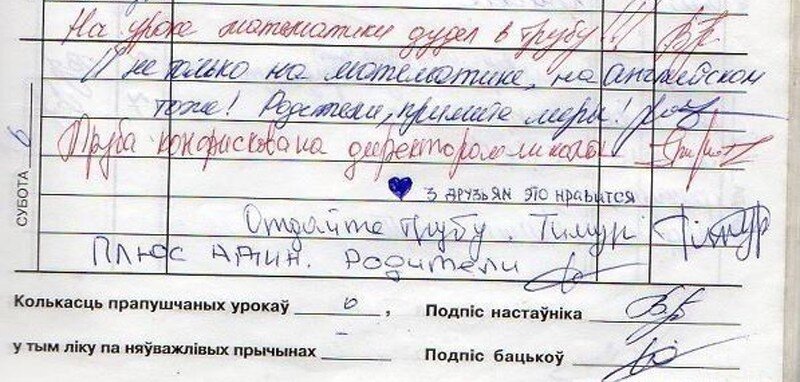 На уроке математики дудел в трубу!!!
И не только на математике, на английском
тоже! Родители, примите меры!
Труба конфискована директором школы
СУБОТА 6
♥ 3 друзьям это нравится
Отдайте трубу. Тимур Тимур
Плюс адин. Родители
Колькасць прапушчаных урокаў 6, Подпіс настаўніка
у тым ліку па няўважлівых прычынах – Подпіс бацькоў